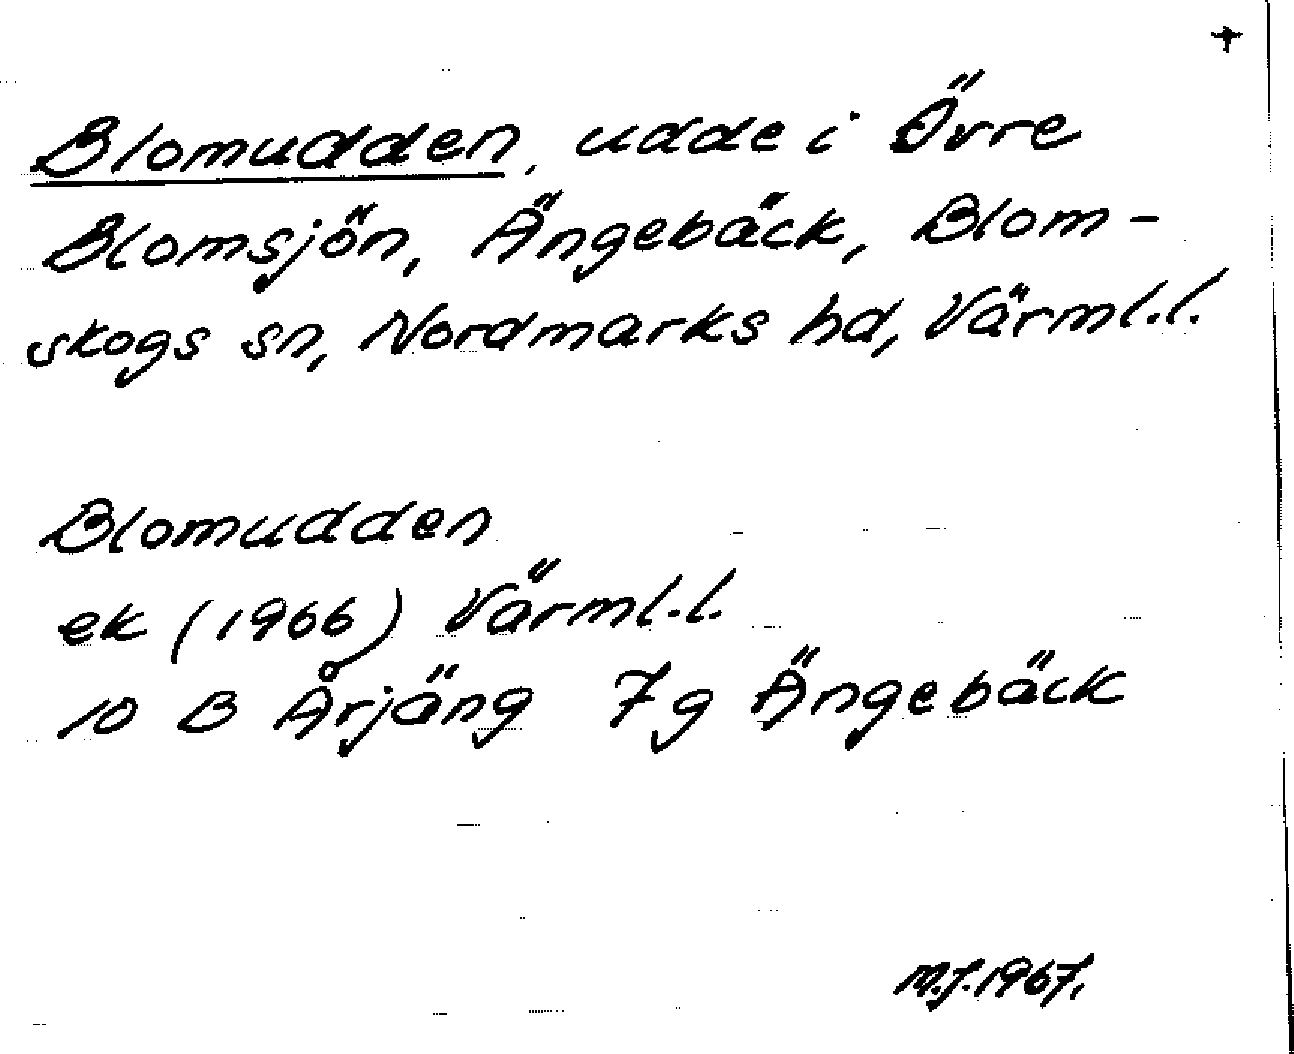 +
Blomudden, udde i Övre
Blomsjön, Ängebäck, Blom-
skogs sn, Nordmarks hd, Värml.l.
Blomudden
ek (1966) Värml.l.
10 B Årjäng 7g Ängebäck
M.J. 1967.